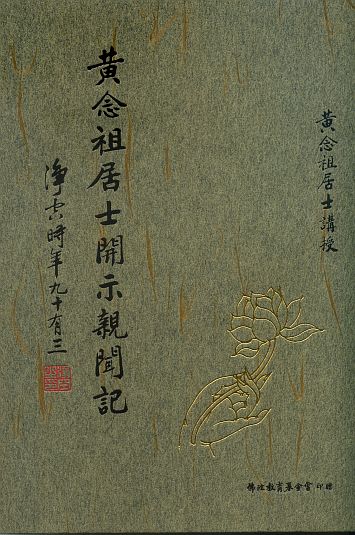 黃念祖居士講授
黃念祖居士開示親聞記
淨空時年九十有三
佛陀教育基金會 印贈